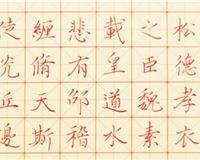 松德孝衣
之臣魏素
載皇道水
悲有邵稽
纏脩天斯
徒丘邊